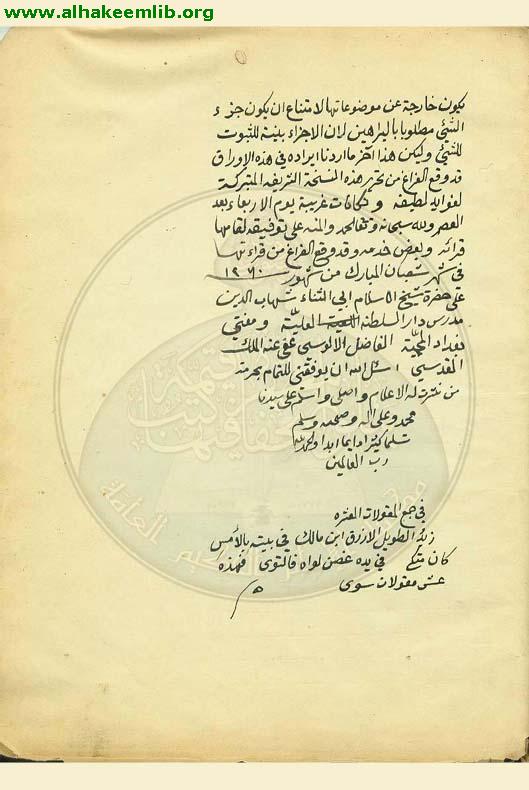 www.alhakeemlib.org
يكون خارجة عن موضوعاتها لامتناع ان يكون جزء
الشئ مطلوبا بالبراهين لان الاجزاء بينة للثبوت
للشئ وليكن هذا آخر ما اردنا ايراده في هذه الاوراق
قد وقع الفراغ من تحرير هذه النسخة الشريفه المتبركة
لفوايد لطيفه و غريبة يوم الاربعاء بعد
العصر ولله سبحانه وتعالى الحمد والمنه على توفيقه
وبعض خدمه وقد وقع الفراغ من قراءتها
في شهر شعبان المبارك من شهور ١٢٦٠
على حضرة شيخ الاسلام ابي الثناء شهاب الدين
مدرس دار السلطنه العليّة ومفتي
بغداد المحميّة الفاضل الالوسي عفى عنه الملك
القدسي اسئل الله ان يوفقني للتمام بحرمة
من نشرت له الاعلام واصلى واسلم على سيدنا
محمد وعلى اله وصحبه وسلم
تسليما كثيرا دايما ابدا والحمد لله
رب العالمين
في جمع المقولات العشره
زيد الطويل الازرق ابن مالك في بيته بالأمس
كان متكي في يده غصن لواه فالتوى فهذه
عشر مقولات سوى